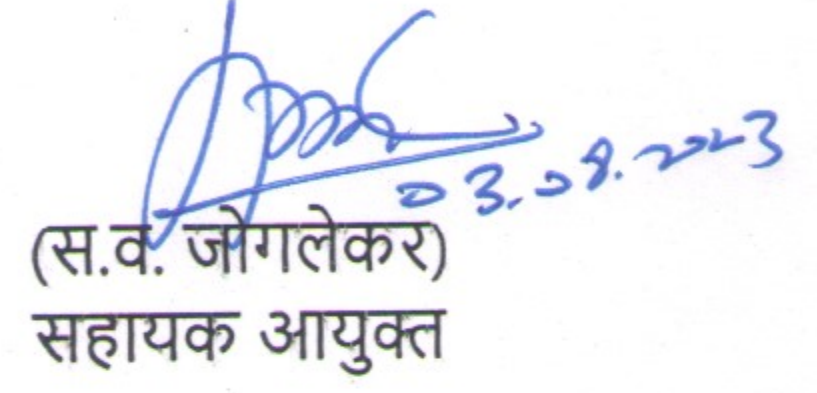 03.08.2023
(स.व. जोगलेकर)
सहायक आयुक्त